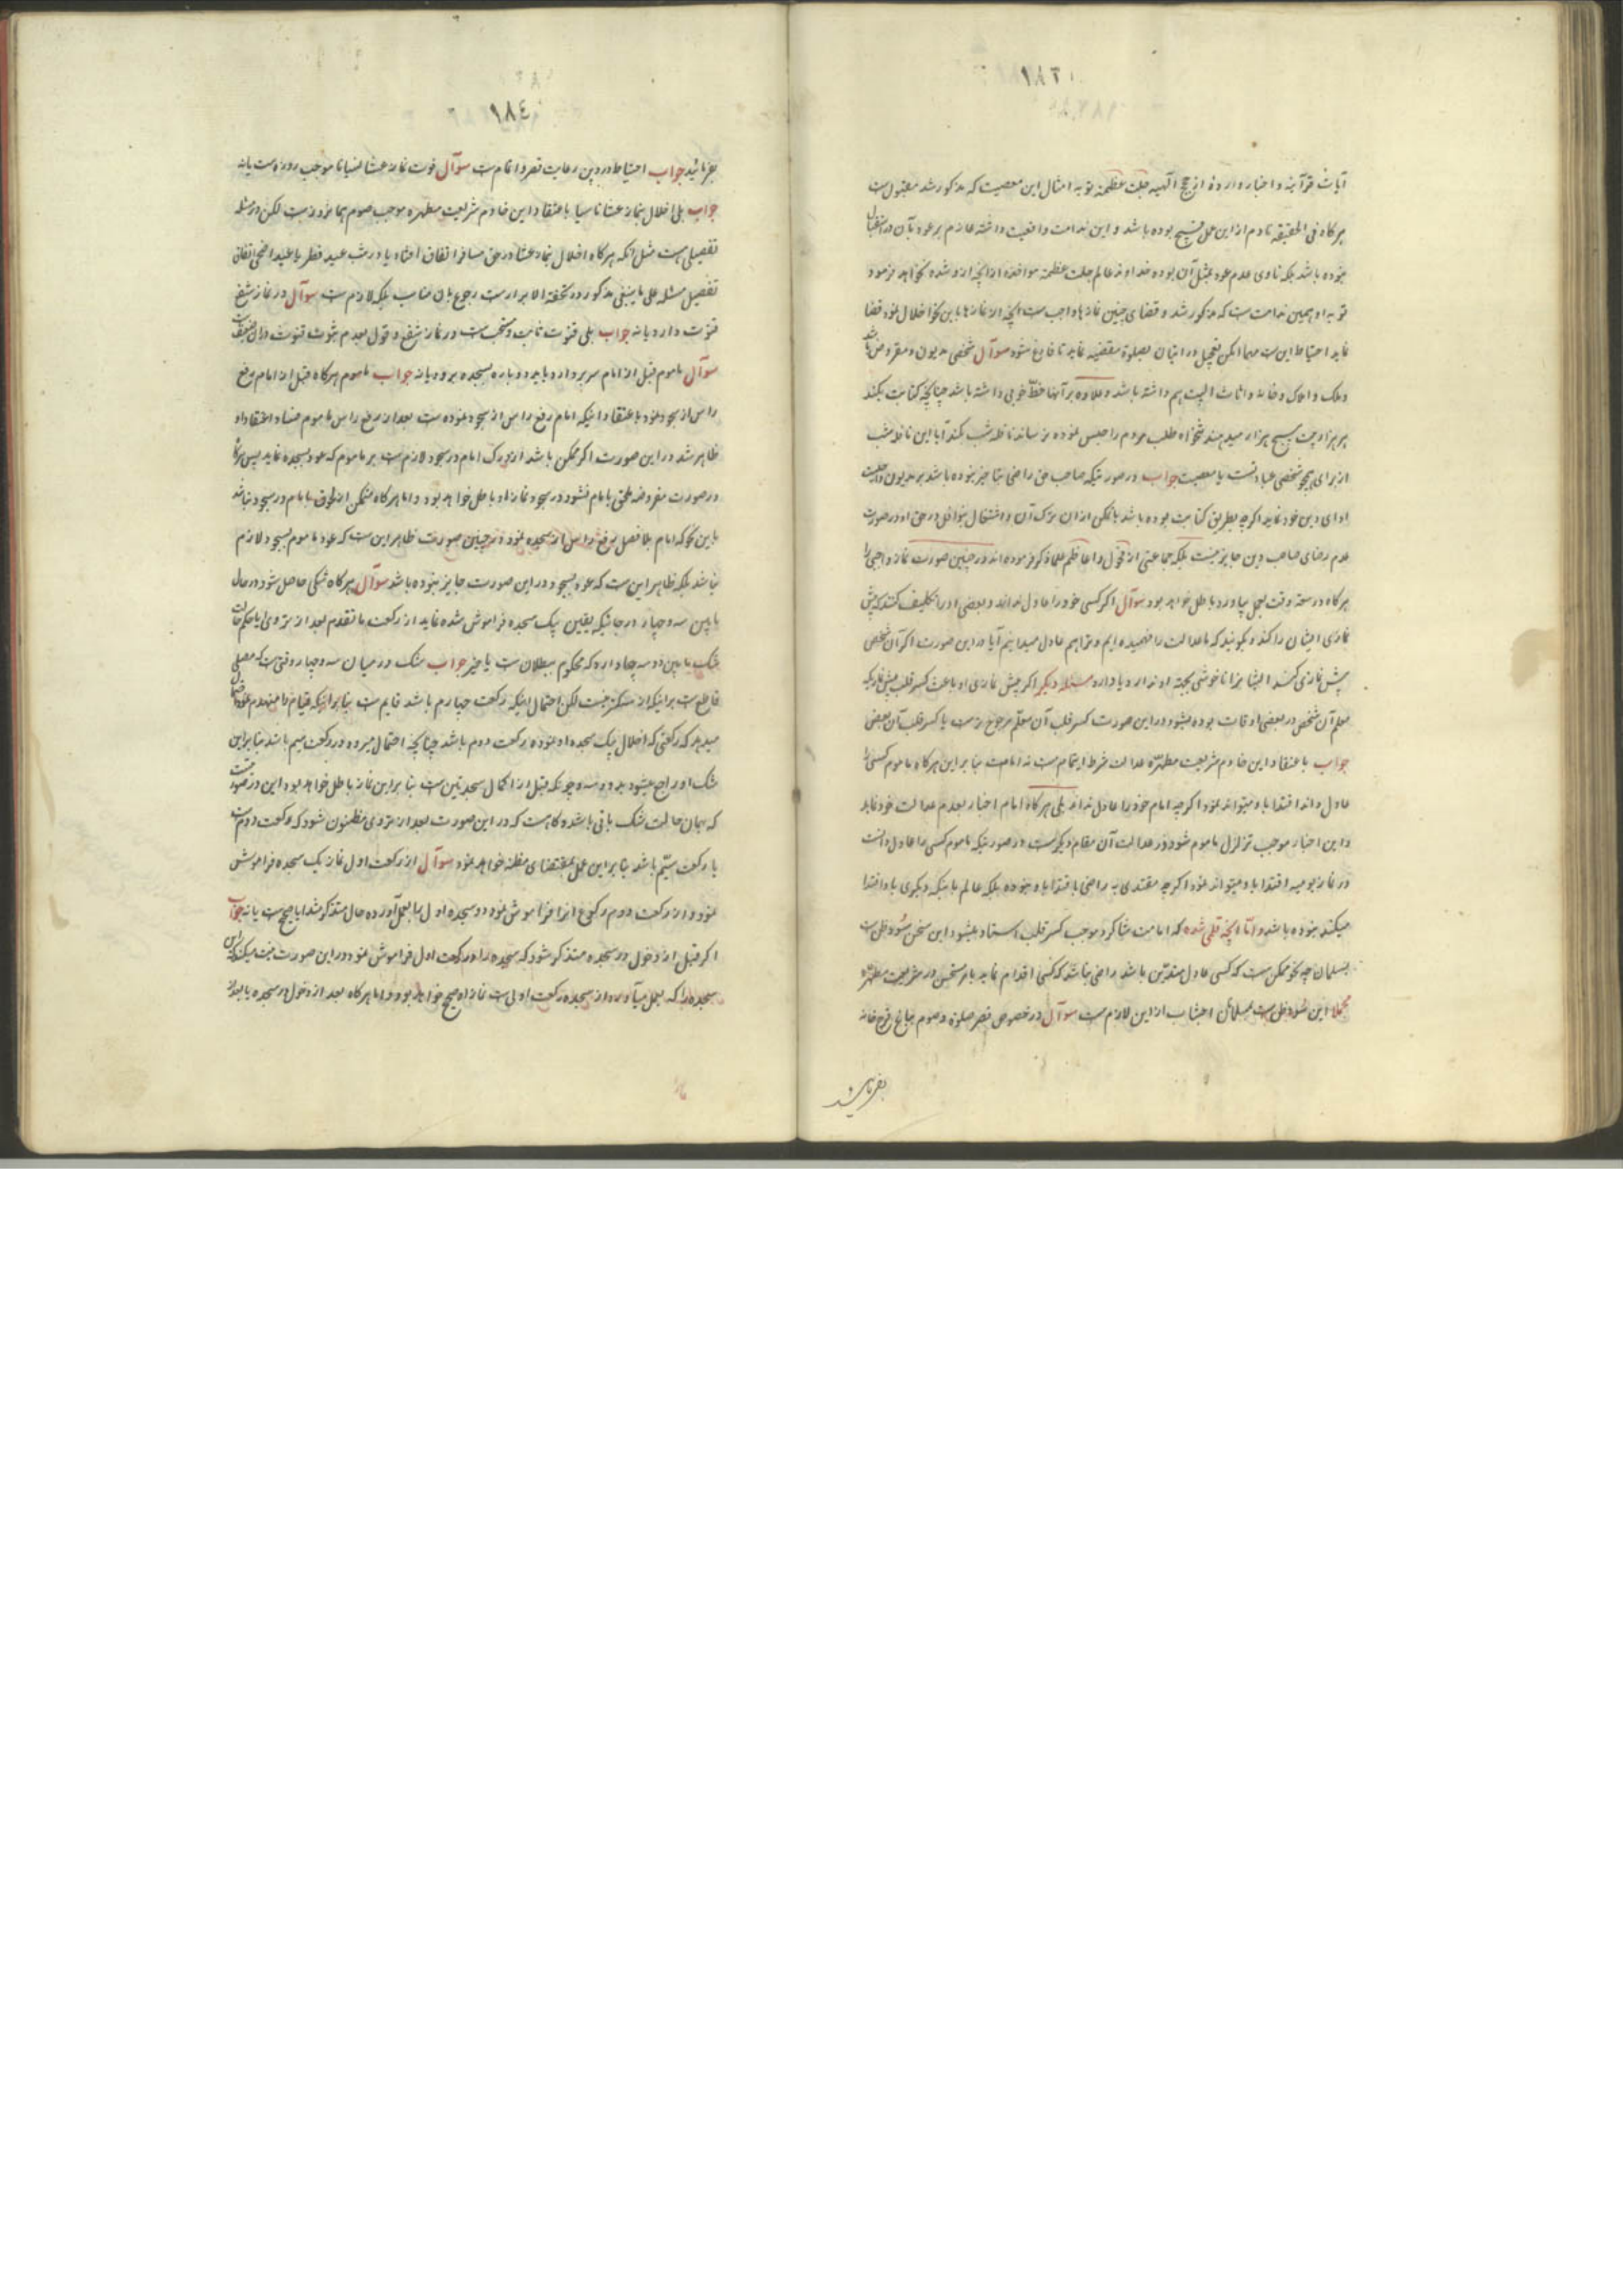 ۱۸۳
آیات قرآنیه و اخبار وارده از حجج الهیه جلت عظمته توبه امثال این معصیت که مذکور شد مقبول است
هرگاه فی الحقیقه نادم از این عمل قبیح بوده باشد و این ندامت واقعیت داشته عازم بر عود بآن در استقبال
نبوده باشد بلکه ناوی عدم عود بمثل آن بوده خداوند عالم جلت عظمته مواخذه از آنچه از او شده نخواهد فرمود
توبه او همین ندامت است که مذکور شد و قضای چنین نمازها واجب است آنچه از نمازها باین نحو اخلال نمود قضا
نماید احتیاط این است مهما امکن تعجیل در اتیان بصلوة مقضیه نماید تا فارغ شود سوآل شخصی مدیون و مقروض باشد
و ملک و املاک و خانه و اثاث البیت هم داشته باشد و علاوه بر آنها خط خوبی داشته باشد چنانچه کتابت بکند
هر هزار بیت پنج هزار میدهند تنخواه طلب مردم را حبس نموده نرساند نافله شب بکند آیا این نافله شب
از برای همچو شخصی عبادتست یا معصیت جواب در صورتیکه صاحب حق راضی بتاخیر نبوده باشد بر مدیون واجبست
ادای دین خود نماید اگرچه بطریق کتابت بوده باشد با تمکن از آن ترک آن و اشتغال بنوافل در حق او در صورت
عدم رضای صاحب دین جایز نیست بلکه جماعتی از فحول و اعاظم علما ذکر فرموده اند در چنین صورت نماز واجبی را
هرگاه در سعة وقت بعمل بیاورد باطل خواهد بود سوآل اگر کسی خود را عادل نداند و بعضی او را تکلیف کنند که پیش
نمازی ایشان را کند و گویند که ما عدالت را فهمیده ایم و ترا هم عادل میدانیم آیا در این صورت اگر آن شخص
پیش نمازی کند ایشانرا ناخوشی بجهة او ندارد یا دارد مسئله دیگر اگر پیش نمازی او باعث کسر قلب پیش نماز دیگر که
معلم آن شخص در بعضی اوقات بوده میشود در این صورت کسر قلب آن معلم مرجوح تر است یا کسر قلب آن بعضی
جواب باعتقاد این خادم شریعت مطهره عدالت شرط ایتمام است نه امامت بنابراین هرگاه ماموم کسی را
عادل داند اقتدا باو میتواند نمود اگرچه امام خود را عادل نداند بلی هرگاه امام اخبار بعدم عدالت خود نماید
و این اخبار موجب تزلزل ماموم شود در عدالت آن مقام دیگر است در صورتیکه ماموم کسی را عادل دانست
در نماز یومیه اقتدا باو میتواند نمود اگرچه مقتدی به راضی باقتدا باو نبوده بلکه عالم باینکه دیگری باو اقتدا
میکند نبوده باشد و اما آنچه قلمی شده که امامت شاگرد موجب کسر قلب استاد میشود این سخن سوءظن است
بمسلمان چه نحو ممکن است که کسی عادل متدین باشد راضی نباشد که کسی اقدام نماید بامر مستحسن در شریعت مطهره
مجملا این سوءظن است بمسلمانان اجتناب از این لازم است سوآل در خصوص قصر صلوة و صوم
بفرمائید
۱۸۴
بفرمائید جواب احتیاط در دین رعایت قصر و اتمام است سوآل فوت نماز عشا نسیانا موجب روزه است یا نه
جواب بلی اخلال بنماز عشا ناسیا باعتقاد این خادم شریعت مطهره موجب صوم همانروز است لکن در مسئله
تفصیلی است مثل آنکه هرگاه اخلال بنماز عشا در حق مسافر اتفاق افتاد یا در شب عید فطر یا عید اضحی اتفاق
تفصیل مسئله علی ما ینبغی مذکور در تحفة الابرار است رجوع بآن مناسب بلکه لازم است سوآل در نماز شفع
قنوت دارد یا نه جواب بلی قنوت ثابت و مستحب است در نماز شفع و قول بعدم ثبوت قنوت در آن ضعیف است
سوآل ماموم قبل از امام سر بردارد باید دوباره بسجده برود یا نه جواب ماموم هرگاه قبل از امام رفع
راس از سجود نمود باعتقاد اینکه امام رفع راس از سجود نموده است بعد از رفع راس ماموم فساد اعتقاد او
ظاهر شد در این صورت اگر ممکن باشد او را درک امام در سجود لازم است بر ماموم که عود بسجده نماید پس هرگاه
در صورت مفروضه ملحق بامام نشود در سجود نماز او باطل خواهد بود و اما هرگاه متمکن از لحوق بامام در سجود نباشد
باین نحو که امام بلافصل رفع راس از سجده نمود در چنین صورت ظاهر این است که عود ماموم بسجود لازم
نباشد بلکه ظاهر این است که عود بسجود در این صورت جایز نبوده باشد سوآل هرگاه شکی حاصل شود در حال
مابین سه و چهار در جائیکه یقین بیک سجده فراموش شده نماید از رکعت ما تقدم بعد از تروی آیا حکم حالت
شک مابین دو سه چهار دارد که محکوم ببطلان است یا خیر جواب شک در میان سه و چهار وقتی است که مصلی
قاطع است بر اینکه از سه کمتر نیست لکن احتمال اینکه رکعت چهارم باشد قایم است بنابراینکه قیام ما منهدم علم
میدهد که رکعتی که اخلال بیک سجده او نموده رکعت دوم باشد چنانچه احتمال میرود در رکعت سیم باشد بنابراین
شک او راجع میشود به دو و سه و چونکه قبل از اکمال سجدتین است بنابراین نماز باطل خواهد بود این در صورتیست
که بهمان حالت شک باقی باشد و گاه است که در این صورت بعد از تروی مظنون شود که رکعت دوم است
یا رکعت سیم باشد بنابراین عمل بمقتضای مظنه خواهد نمود سوآل از رکعت اول نماز یک سجده فراموش
نمود و از رکعت دوم رکوع آنرا فراموش نمود دو سجده اول را بعمل آورده حال متذکر شد آیا صحیح است یا نه جواب
اگر قبل از دخول در سجده متذکر شود که سجده را در رکعت اول فراموش نمود در این صورت نیت میکند که این
سجده را که بعمل میآورد از سجده رکعت اولی است نماز او صحیح خواهد بود و اما هرگاه بعد از دخول در سجده یا بعد از